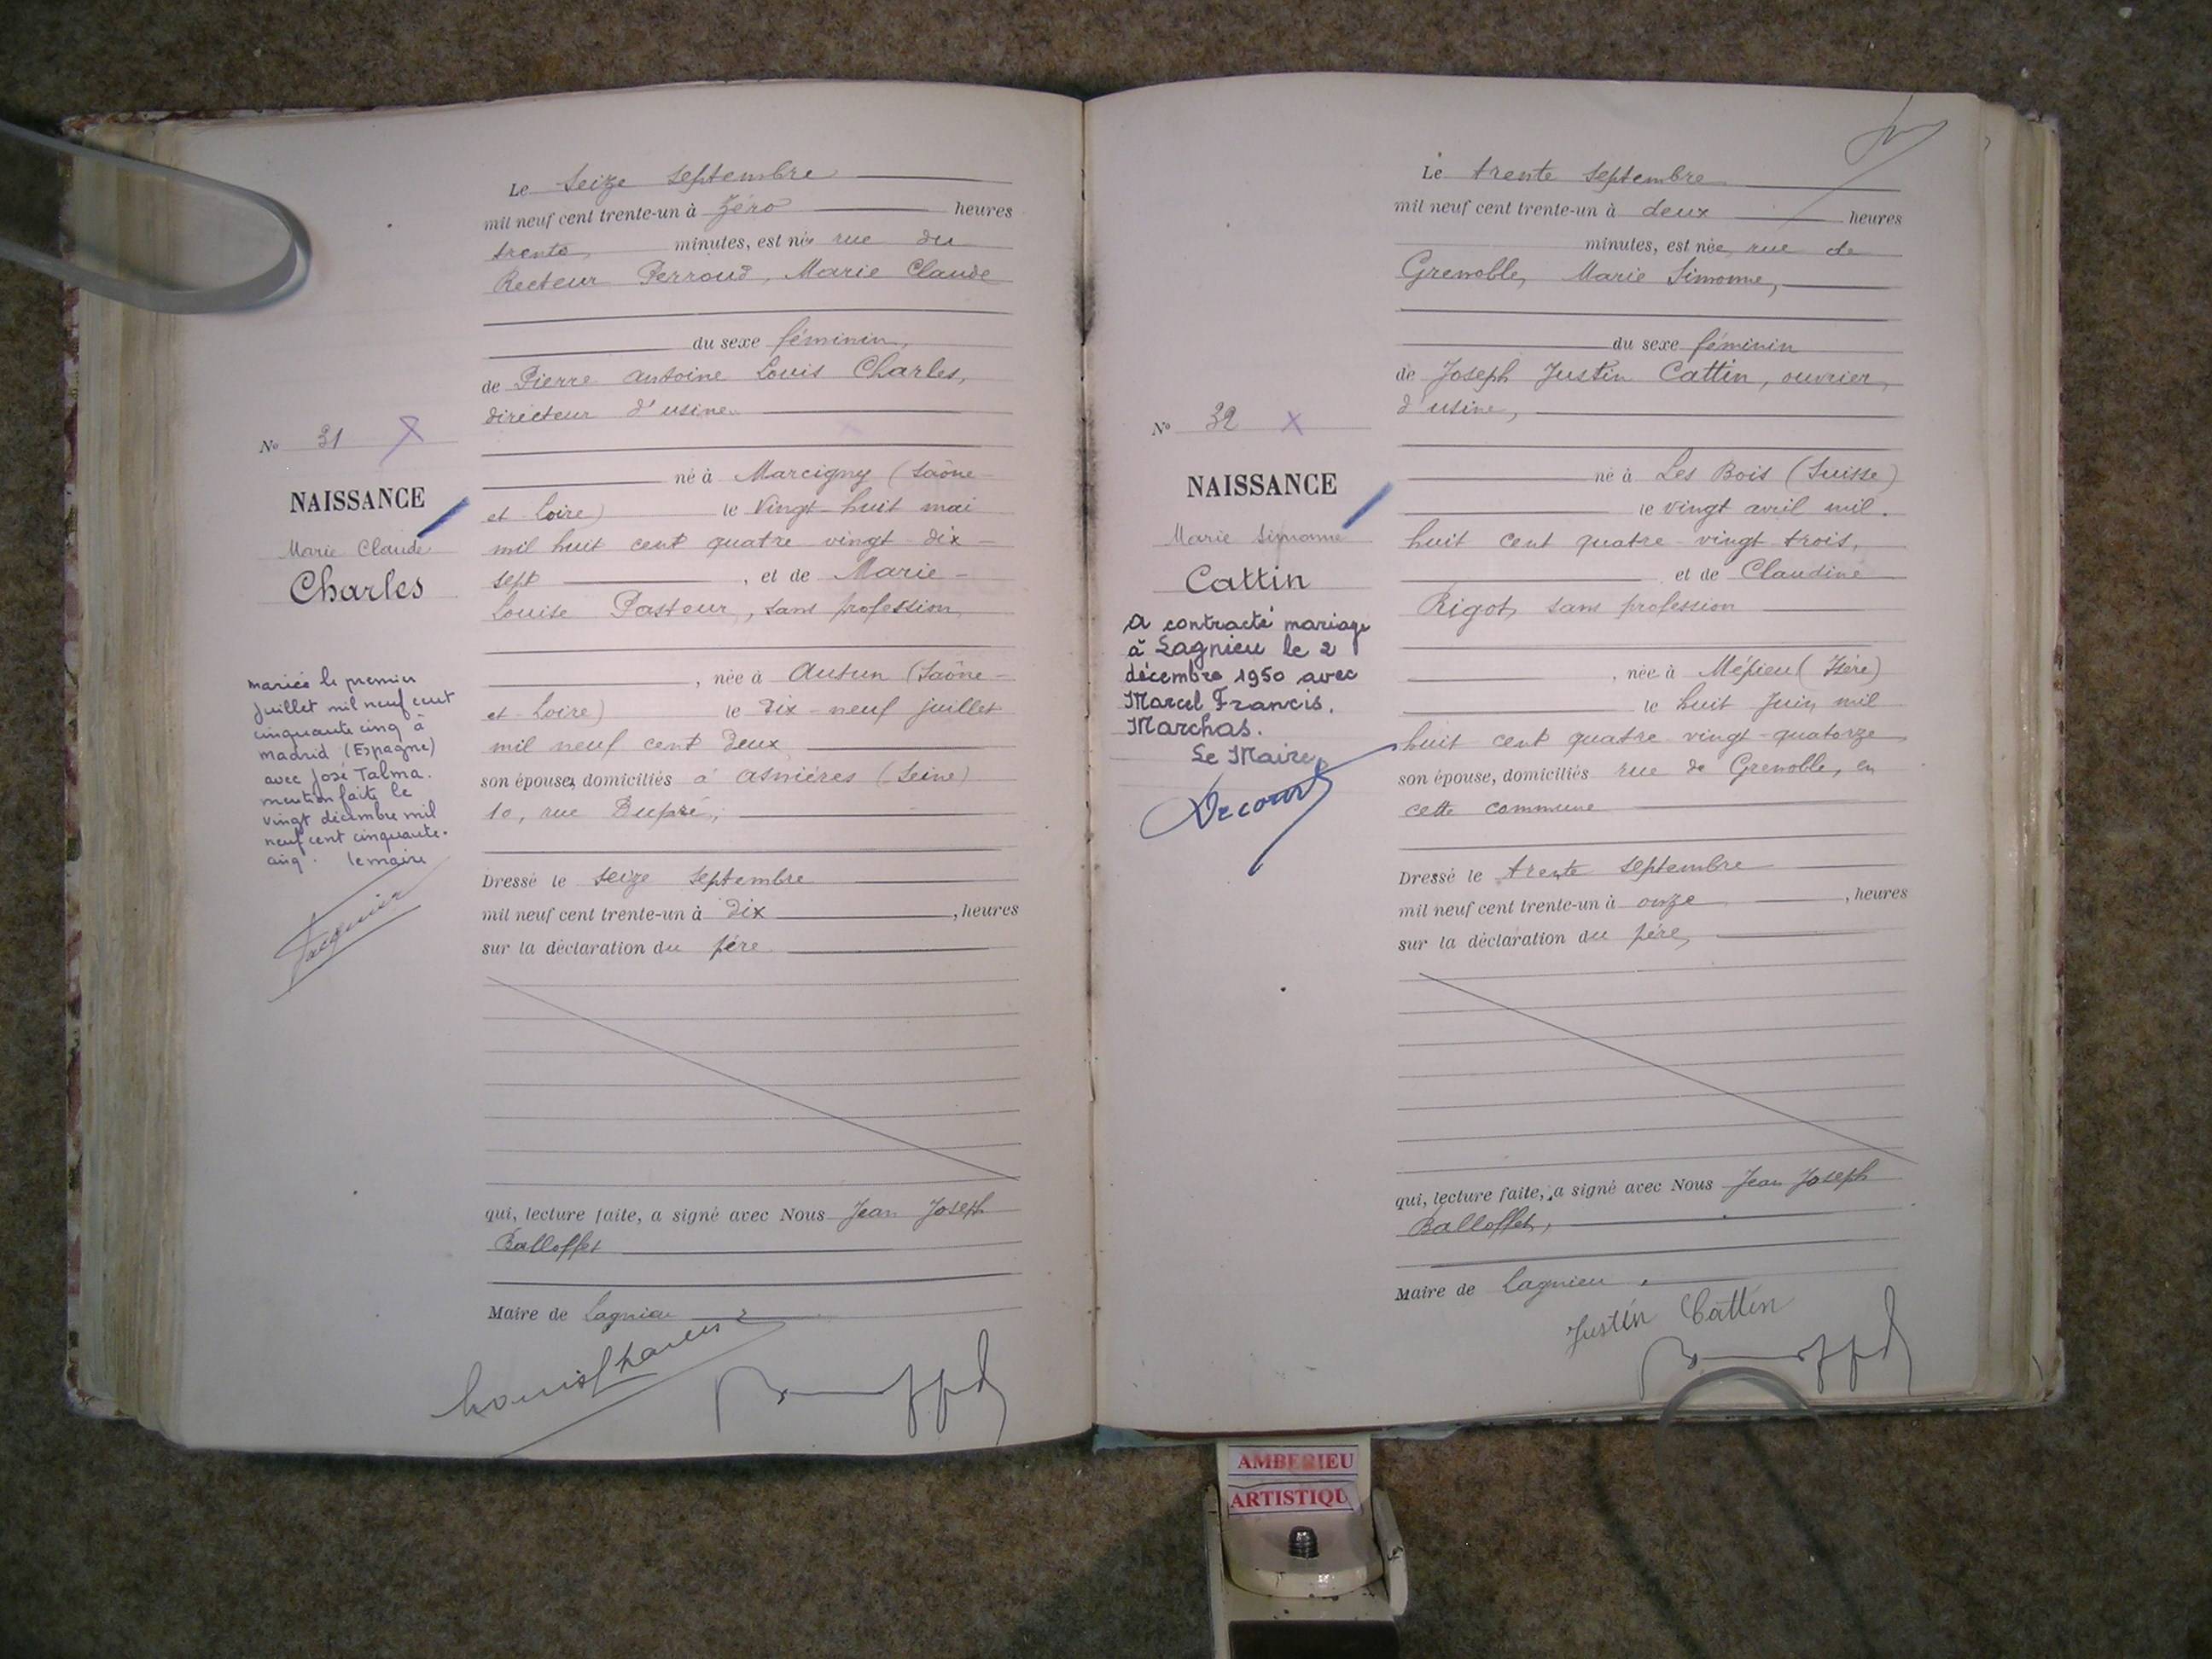 Le seize septembre
mil neuf cent trente-un à zéro heures
trente, minutes, est née rue du
Recteur Perroud, Marie Claude
du sexe féminin,
de Pierre Antoine Louis Charles,
directeur d'usine
né à Marcigny (Saône-
et Loire) le vingt-huit mai
mil huit cent quatre vingt-dix-
sept, et de Marie-
Louise Pasteur, sans profession,
, née à Autun (Saône-
et-Loire) le dix-neuf juillet
mil neuf cent deux
son épouse, domiciliés à Asnières (Seine)
10, rue Dupré,
Dressé le seize septembre
mil neuf cent trente-un à dix, heures
sur la déclaration du père
qui, lecture faite, a signé avec Nous Jean Joseph
Balloffet
Maire de Lagnieu
Louis Charles
No 31 X
NAISSANCE
Marie Claude
Charles
mariée le premier
juillet mil neuf cent
cinquante cinq à
Madrid (Espagne)
avec José Talma.
mention faite le
vingt décembre mil
neuf cent cinquante-
cinq. le maire
Le trente septembre
mil neuf cent trente-un à deux heures
minutes, est née, rue de
Grenoble, Marie Simonne,
du sexe féminin
de Joseph Justin Cattin, ouvrier
d'usine,
né à Les Bois (Suisse)
le vingt avril mil
huit cent quatre-vingt trois,
et de Claudine
Rigot, sans profession
, née à Mépieu (Isère)
le huit Juin mil
huit cent quatre vingt-quatorze
son épouse, domiciliés rue de Grenoble, en
cette commune
Dressé le trente septembre
mil neuf cent trente-un à onze, heures
sur la déclaration du père,
qui, lecture faite, a signé avec Nous Jean Joseph
Balloffet,
Maire de Lagnieu,
Justin Cattin
No 32 X
NAISSANCE
Marie Simonne
Cattin
A contracté mariage
à Lagnieu le 2
décembre 1950 avec
Marcel Francis.
Marchas.
Le Maire,
AMBERIEU
ARTISTIQU